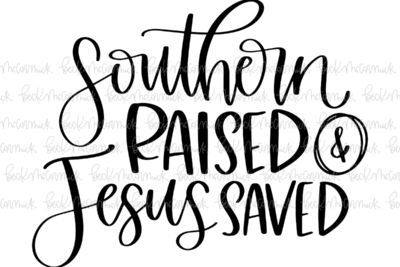 Southern
RAISED &
Jesus SAVED